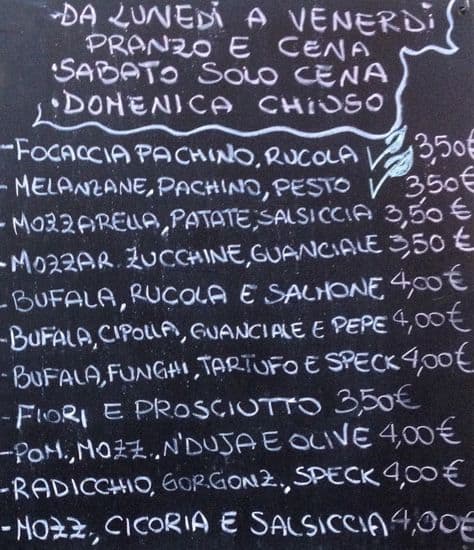 -DA LUNEDÌ A VENERDÌ
PRANZO E CENA
·SABATO SOLO CENA
·DOMENICA CHIUSO
-FOCACCIA PACHINO, RUCOLA V 3,50€
-MELANZANE, PACHINO, PESTO V 3,50€
-MOZZARELLA, PATATE, SALSICCIA 3,50€
-MOZZAR. ZUCCHINE, GUANCIALE 3,50€
-BUFALA, RUCOLA E SALMONE 4,00€
-BUFALA, CIPOLLA, GUANCIALE E PEPE 4,00€
-BUFALA, FUNGHI, TARTUFO E SPECK 4,00€
-FIORI E PROSCIUTTO 3,50€
-POM., MOZZ., N'DUJA E OLIVE 4,00€
-RADICCHIO, GORGONZ., SPECK 4,00€
-MOZZ., CICORIA E SALSICCIA 4,00€